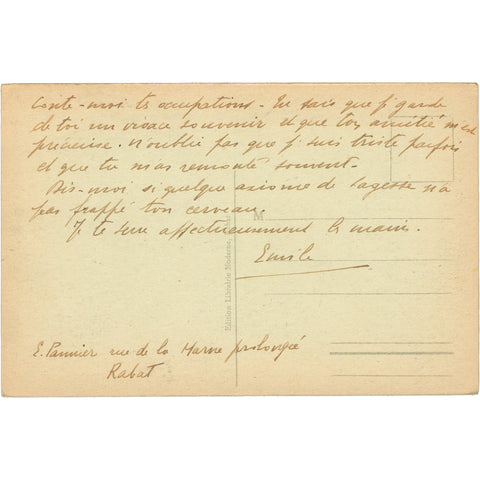 Conte-moi tes occupations. Tu sais que j' garde
de toi un vivace souvenir et que ton amitié m'est
précieuse. N'oublie pas que j' suis triste parfois
et que tu m'as remonté souvent.
Dis-moi si quelque axiome de sagesse n'a
pas frappé ton cerveau.
Je te serre affectueusement la main.
Emile
M
Edition Librairie Moderne,
E. Pannier rue de la Marne prolongée
Rabat